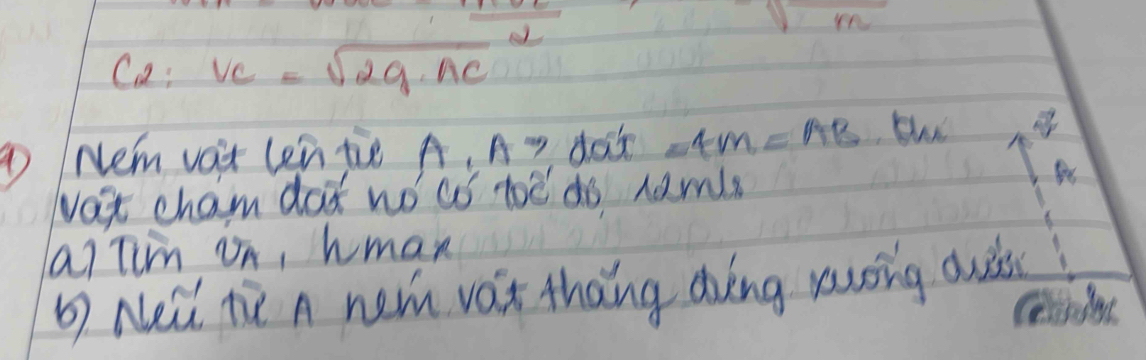 2 m
C2: vc = √2g.hc
1) Ném vật lên từ A, A → đất = 4m = AB. Khi
vật chạm đất nó có tốc độ 12m/s
a) Tìm vA, hmax
b) Nếu từ A ném vật thẳng đứng xuống dưới
A